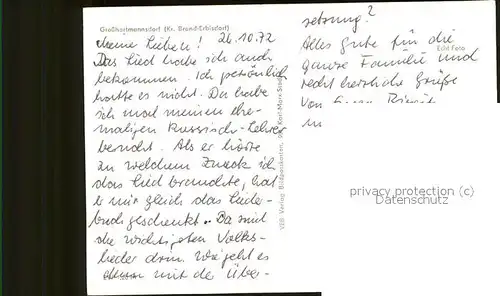 Großhartmannsdorf (Kr. Brand-Erbisdorf)
Meine Lieben! 26.10.72
Das Lied habe ich auch
bekommen. Ich persönlich
hatte es nicht. Da habe
ich mal meinen ehe-
maligen Russisch-Lehrer
besucht. Als er hörte
zu welchem Zweck ich
das Lied brauchte, hat
er mir gleich das Lieder-
buch geschenkt. Da sind
die wichtigsten Volks-
lieder drin. Wie geht es
mit der Über-
setzung?
Alles Gute für die
ganze Familie und
recht herzliche Grüße
von
Echt Foto
VEB Verlag Bild
Karl-Marx-St
privacy protection (c)
Datenschutz